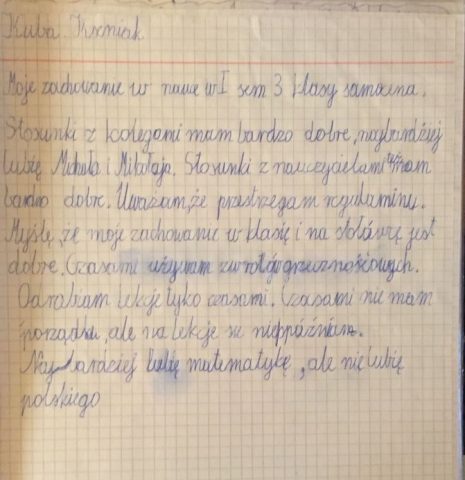 Kuba Kuźniak
Moje zachowanie w nauce w I sem 3 klasy samoocena.
Stosunki z kolegami mam bardzo dobre, najbardziej
lubię Michała i Mikołaja. Stosunki z nauczycielami mam
bardzo dobre. Uważam, że przestrzegam regulaminu.
Myślę, że moje zachowanie w klasie i na stołówce jest
dobre. Czasami używam zwrotów grzecznościowych.
Odrabiam lekcje tyko czasami. Czasami nie mam
porządku, ale na lekcje se nie późniam.
Najbardziej lubię matematykę, ale nie lubię
polskiego